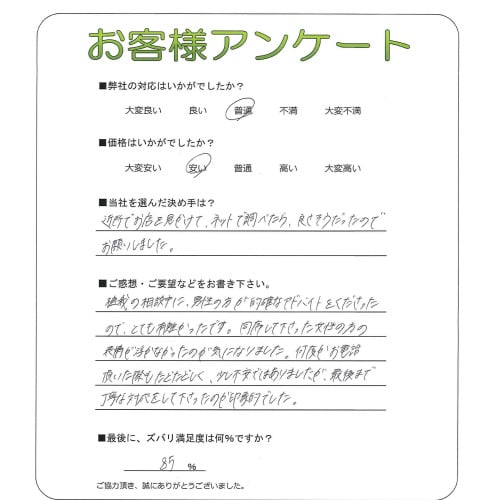 お客様アンケート
■弊社の対応はいかがでしたか？
大変良い 良い 普通 不満 大変不満
■価格はいかがでしたか？
大変安い 安い 普通 高い 大変高い
■当社を選んだ決め手は？
近所でお店を見かけて、ネットで調べたら、良さそうだったので
お願いしました。
■ご感想・ご要望などをお書き下さい。
植栽の相談中に、男性の方が的確なアドバイスをくださった
ので、とても有難かったです。同席して下さった女性の方の
表情が浮かなかったのが気になりました。何度かお電話
頂いた際もたどたどしく、少し不安ではありましたが、最後まで
丁寧な対応をして下さったのが印象的でした。
■最後に、ズバリ満足度は何％ですか？
85 ％
ご協力頂き、誠にありがとうございました。